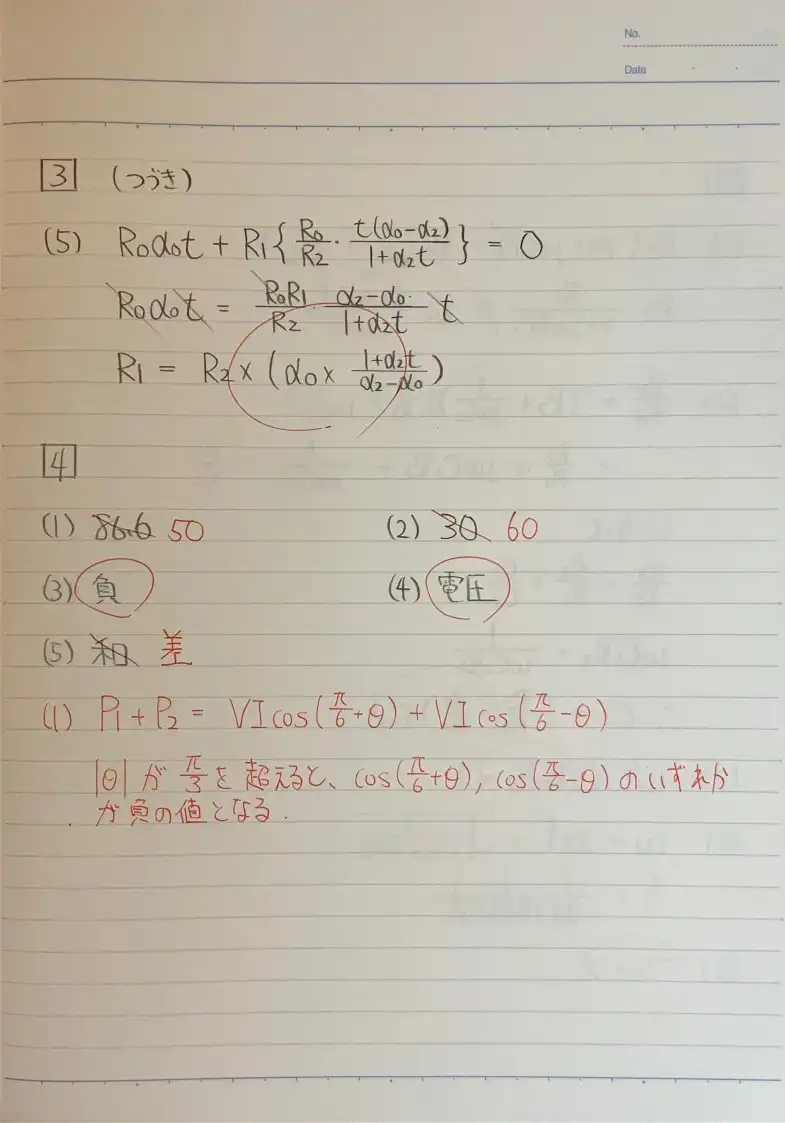 No.
Date
3 (つづき)
(5) R₀α₀t + R₁{R₀/R₂・t(α₀-α₂)/1+α₂t} = 0
R₀α₀t = R₀R₁/R₂ α₂-α₀/1+α₂t t
R₁ = R₂×(α₀× 1+α₂t/α₂-α₀)
4
(1) 86.6 50 (2) 30 60
(3) 負 (4) 電圧
(5) 和 差
(1) P₁+P₂ = VIcos(π/6+θ)+VIcos(π/6-θ)
|θ|がπ/3を超えると、cos(π/6+θ), cos(π/6-θ)のいずれか
が負の値となる.